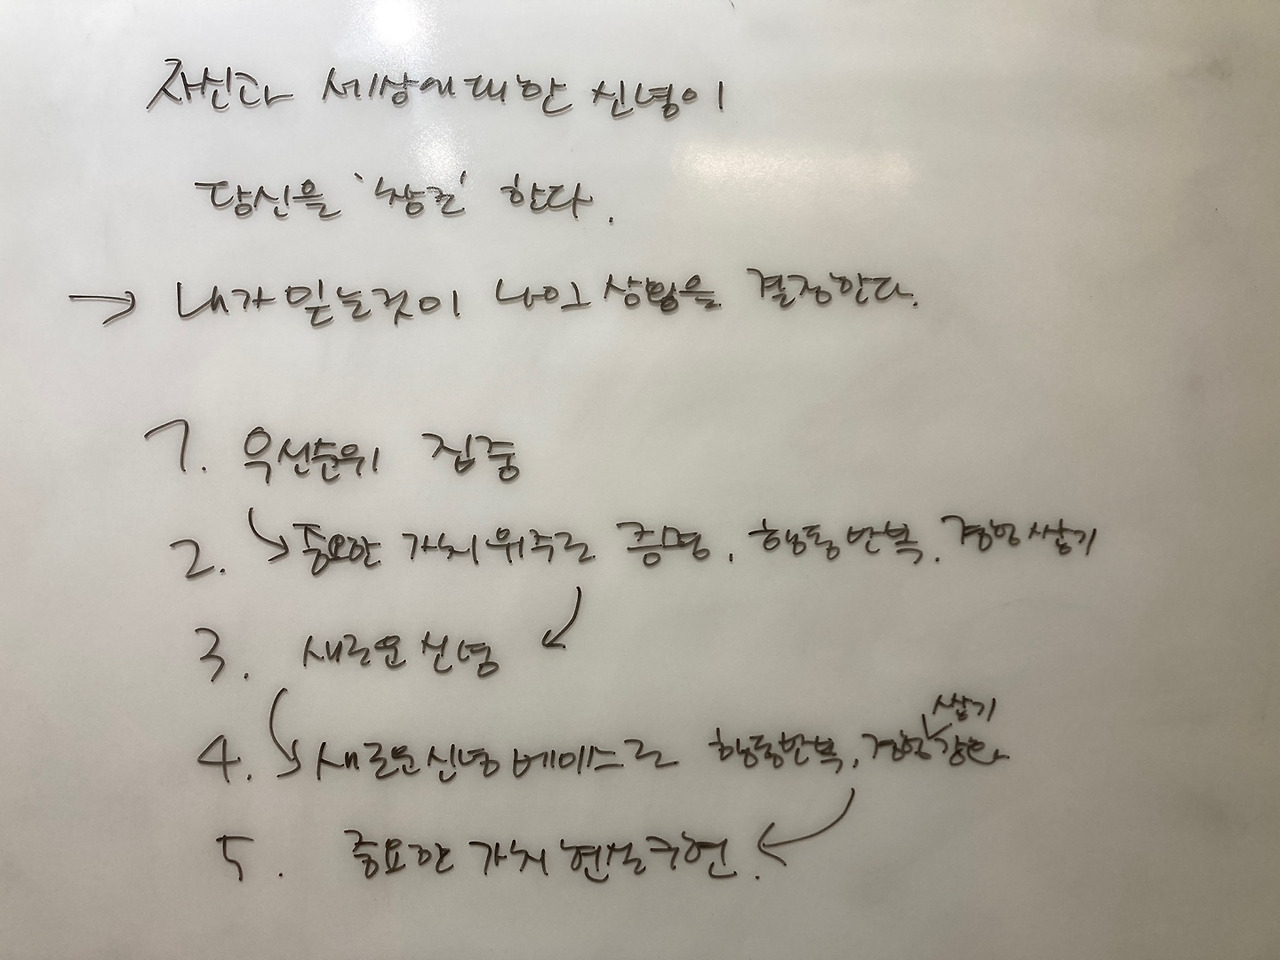 자신과 세상에 대한 신념이
당신을 '창조' 한다.
→ 내가 믿는것이 나의 상황을 결정한다.
1. 우선순위 집중
2. 중요한 가치위주로 증명, 행동반복, 경험쌓기
3. 새로운 신념
4. 새로운신념 베이스로 행동반복, 경험 쌓기 강화
5. 중요한 가치 현실구현.